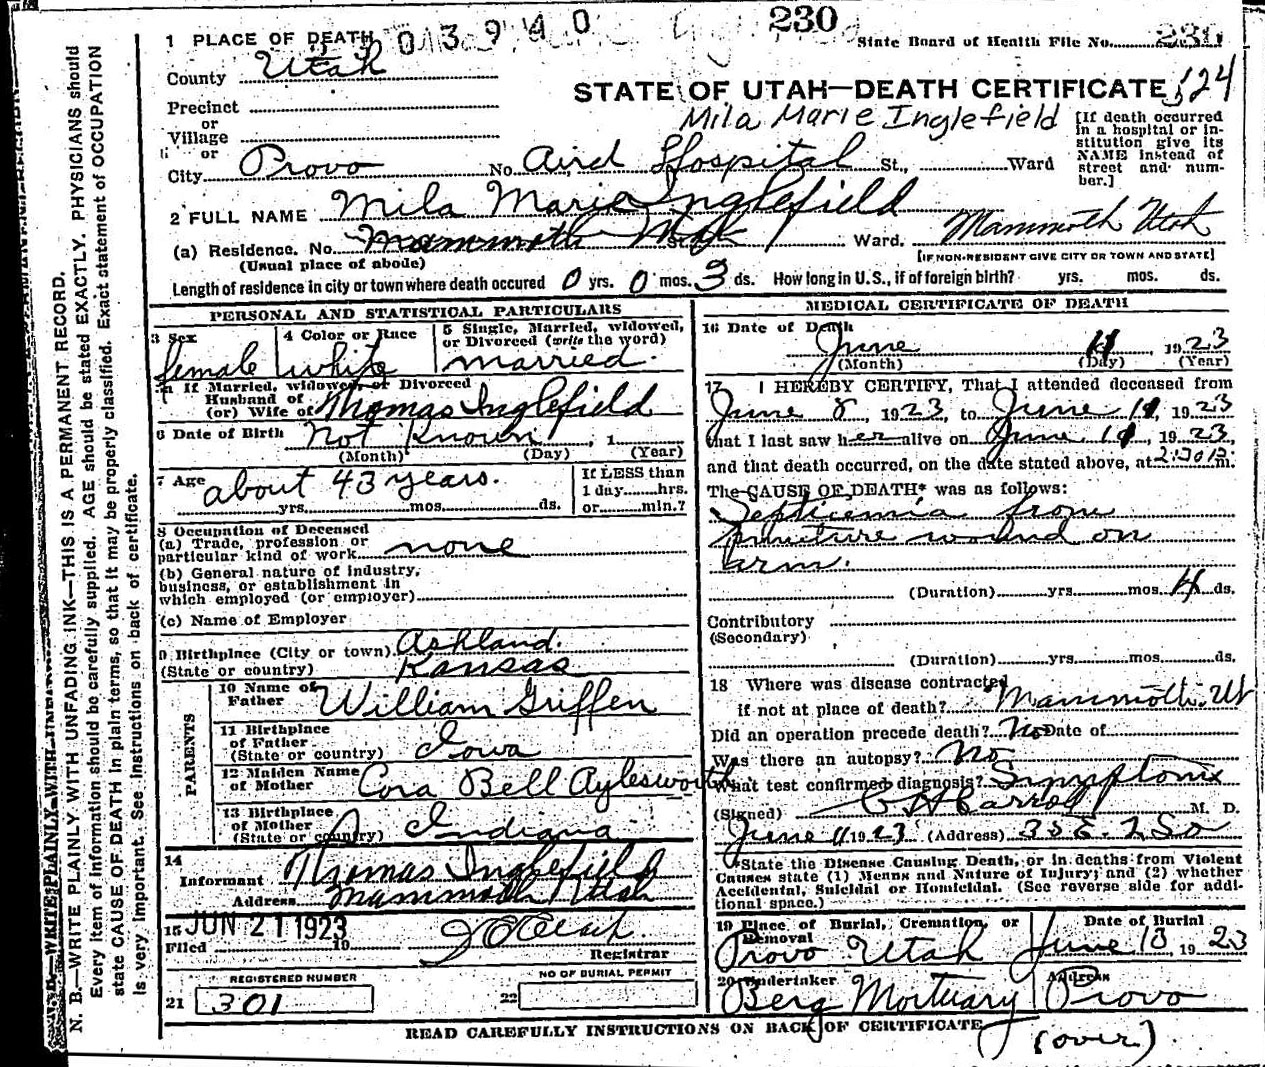 230
1 PLACE OF DEATH 03940
State Board of Health File No. 230
County Utah
STATE OF UTAH—DEATH CERTIFICATE 124
Precinct
or
Village
or
City Provo No. Aird Hospital St., Ward
Mila Marie Inglefield
[If death occurred in a hospital or institution give its NAME instead of street and number.]
2 FULL NAME Mila Marie Inglefield
(a) Residence. No. Mammoth St. Ward. Mammoth Utah
(Usual place of abode) [IF NON-RESIDENT GIVE CITY OR TOWN AND STATE]
Length of residence in city or town where death occured 0 yrs. 0 mos. 3 ds. How long in U.S., if of foreign birth? yrs. mos. ds.
PERSONAL AND STATISTICAL PARTICULARS
3 Sex female
4 Color or Race white
5 Single, Married, widowed, or Divorced (write the word) married.
If Married, widowed or Divorced
Husband of
(or) Wife of Thomas Inglefield
6 Date of Birth Not Known, 1
(Month) (Day) (Year)
7 Age about 43 years.
yrs. mos. ds.
If LESS than
1 day hrs.
or min.?
8 Occupation of Deceased
(a) Trade, profession or
particular kind of work none
(b) General nature of industry,
business, or establishment in
which employed (or employer)
(c) Name of Employer
9 Birthplace (City or town) Ashland.
(State or country) Kansas
PARENTS
10 Name of Father William Griffen
11 Birthplace of Father (State or country) Iowa
12 Maiden Name of Mother Cora Bell Aylesworth
13 Birthplace of Mother (State or country) Indiana
14
Informant Thomas Inglefield
Address Mammoth Utah
15 JUN 21 1923
Filed 19
Registrar
REGISTERED NUMBER
21 301
NO OF BURIAL PERMIT
22
MEDICAL CERTIFICATE OF DEATH
16 Date of Death
June 11, 1923
(Month) (Day) (Year)
17 I HEREBY CERTIFY, That I attended deceased from
June 8, 1923, to June 11, 1923
that I last saw her alive on June 11, 1923,
and that death occurred, on the date stated above, at 2:30 P. m.
The CAUSE OF DEATH* was as follows:
Septicemia from
puncture wound on
arm.
(Duration) yrs. mos. 4 ds.
Contributory
(Secondary)
(Duration) yrs. mos. ds.
18 Where was disease contracted
if not at place of death? Mammoth. Ut
Did an operation precede death? No Date of
Was there an autopsy? No
What test confirmed diagnosis? Symptoms
(Signed) C H Carroll M. D.
June 11 1923 (Address)
*State the Disease Causing Death, or in deaths from Violent
Causes state (1) Menns and Nature of Injury; and (2) whether
Accidental, Suicidal or Homicidal. (See reverse side for addi-
tional space.)
19 Place of Burial, Cremation, or Removal Date of Burial
Provo Utah June 13, 1923
20 Undertaker Address
Berg Mortuary Provo
READ CAREFULLY INSTRUCTIONS ON BACK OF CERTIFICATE
(over)
N. B.—WRITE PLAINLY WITH UNFADING INK—THIS IS A PERMANENT RECORD.
Every item of information should be carefully supplied. AGE should be stated EXACTLY. PHYSICIANS should
state CAUSE OF DEATH in plain terms, so that it may be properly classified. Exact statement of OCCUPATION
is very important. See instructions on back of certificate.